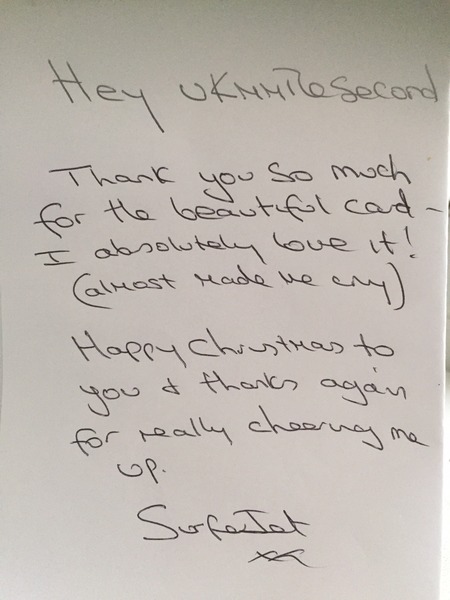 Hey UKMMTheSecond
Thank you so much
for the beautiful card -
I absolutely love it!
(almost made me cry)
Happy Christmas to
you & thanks again
for really cheering me
up.
SurferJet
xx